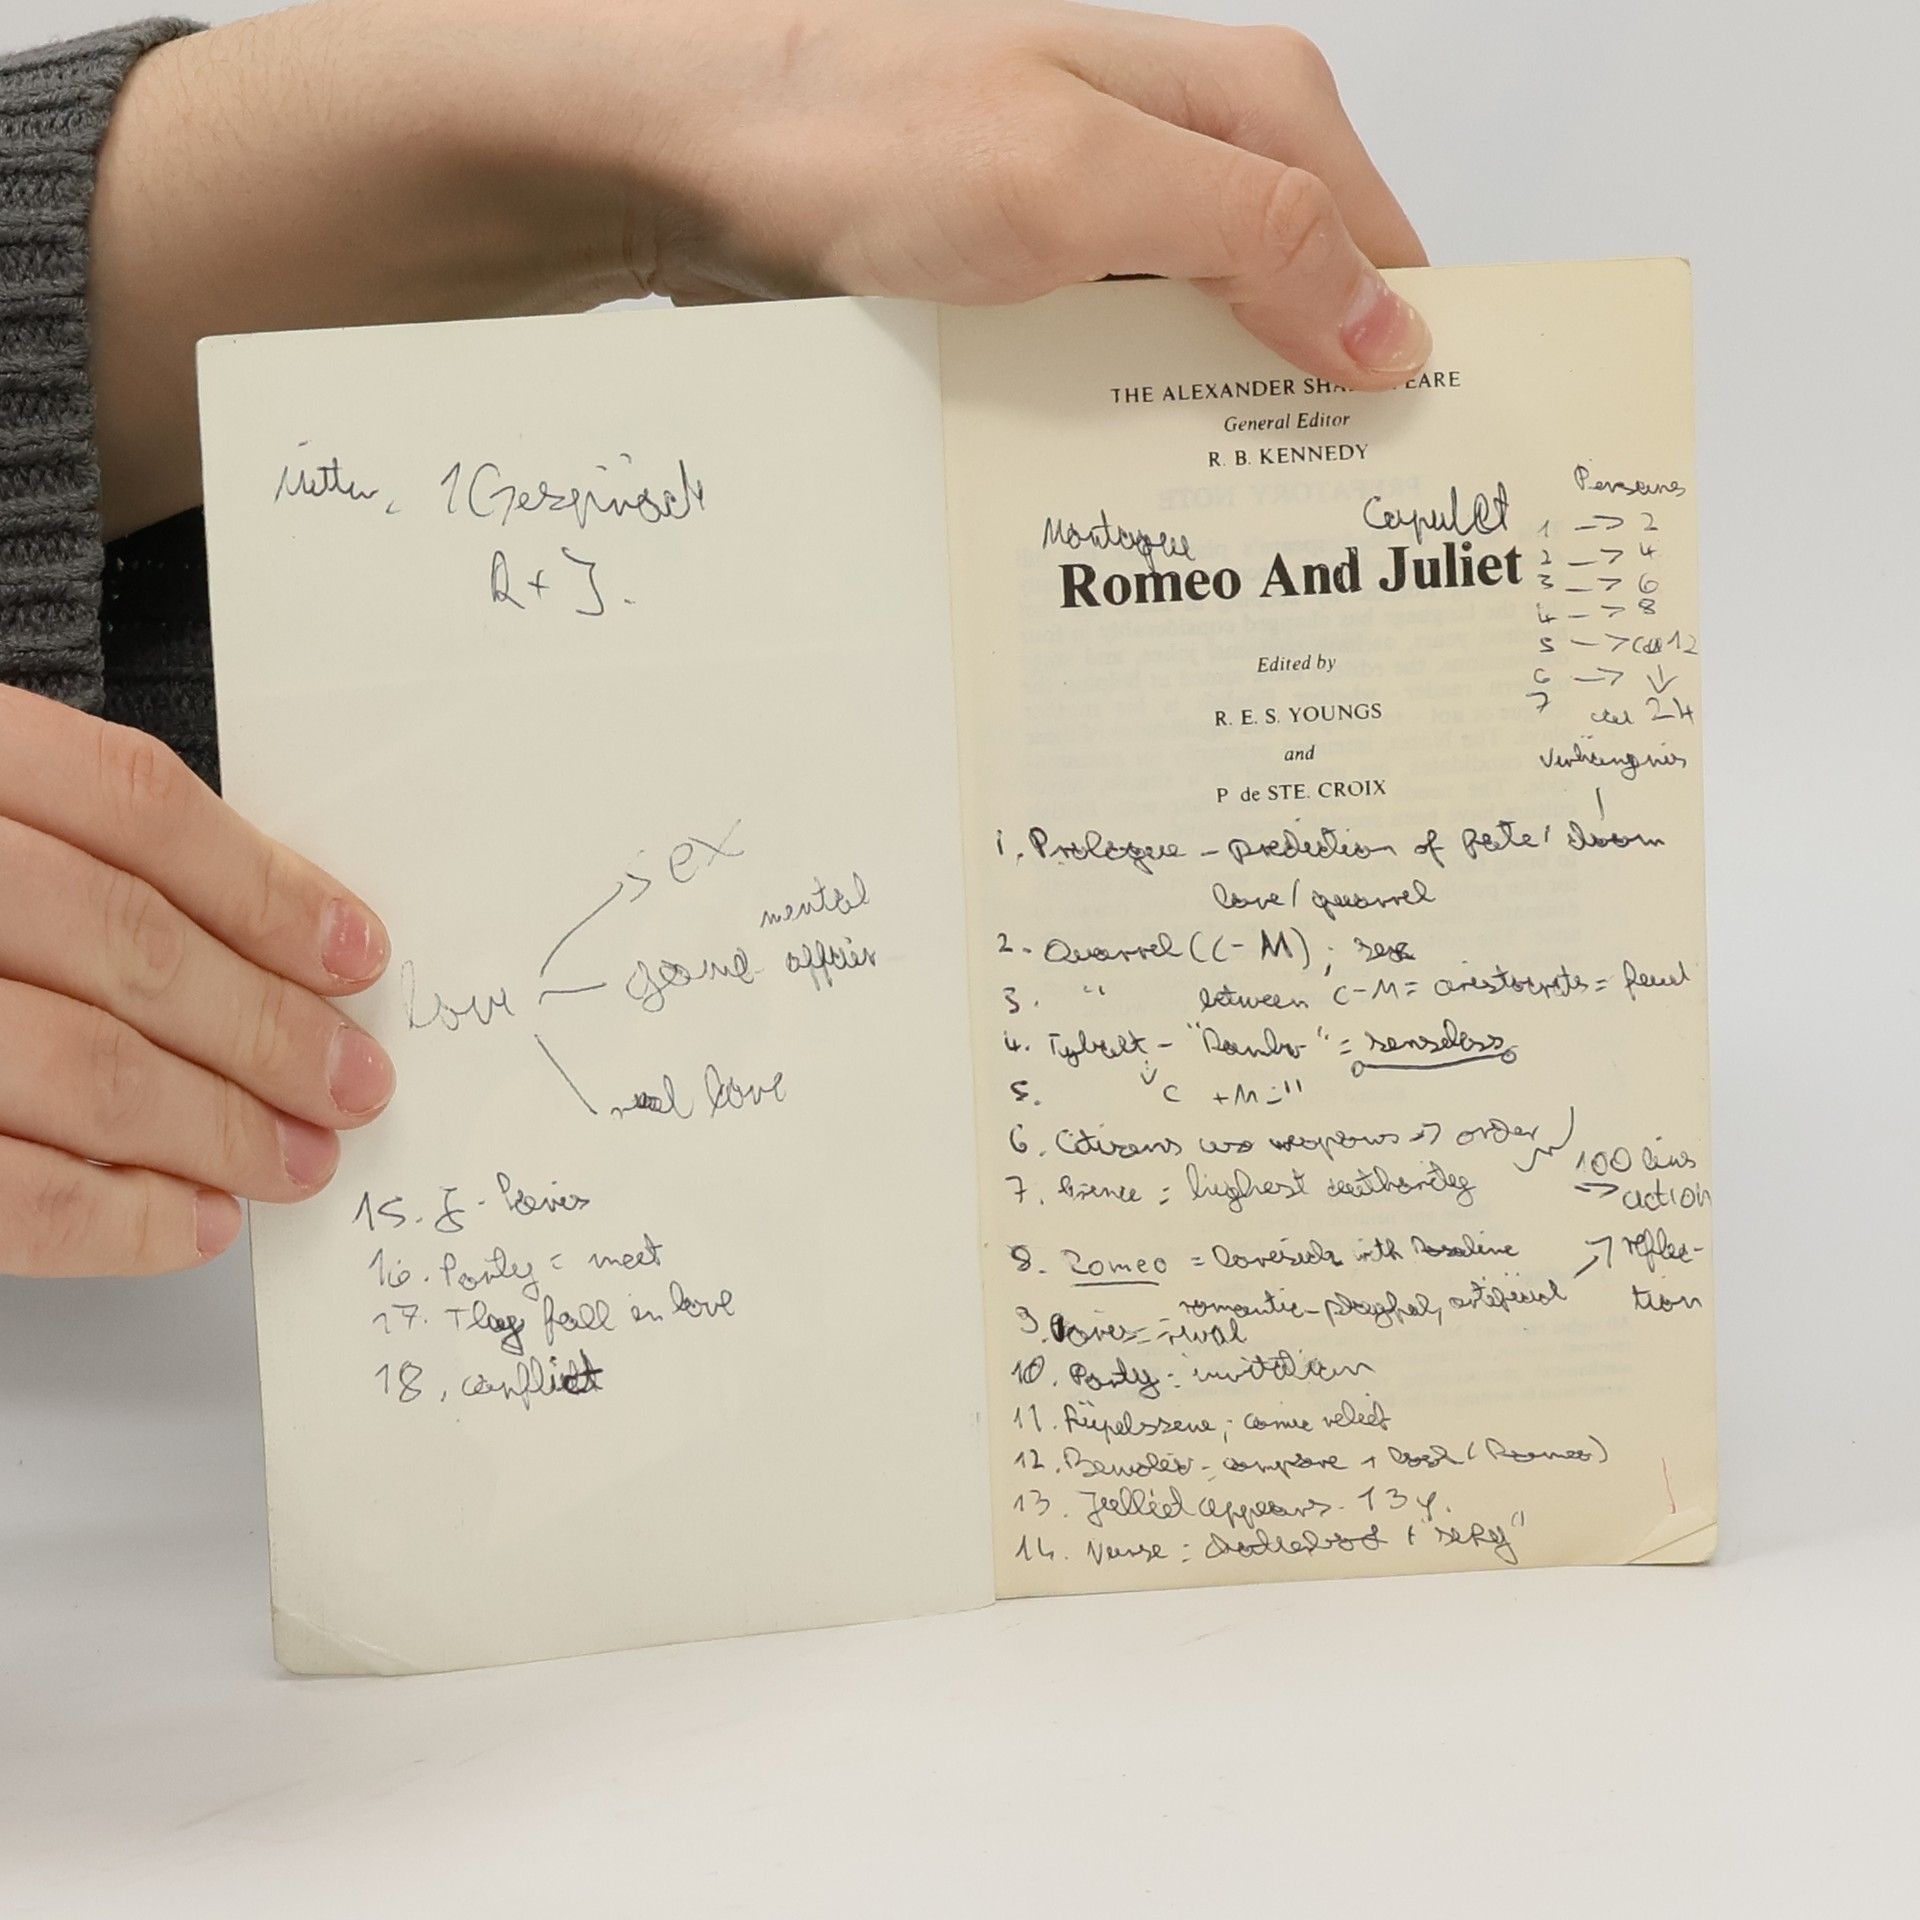 1 Gespräch
R + J.
sex
mental
love — game affair
real love
15. J. - Paris
16. Party = meet
17. They fall in love
18. conflict
THE ALEXANDER SHA EARE
General Editor
R. B. KENNEDY
Montague Capulet
Romeo And Juliet
Edited by
R. E. S. YOUNGS
and
P de STE. CROIX
Persons
1 -> 2
2 -> 4
3 -> 6
4 -> 8
5 -> 12
6 -> ↓
7 24
Verhängnis
1. Prologue - prediction of fate / doom
love / quarrel
2. Quarrel (C - M) ; sex
3. " between C - M = aristocrats = feud
4. Tybalt - "Rambo" = senseless
5. C + M = "
6. Citizens weapons => order
7. Prince = highest authority
100 lines
=> action
8. Romeo = lovesick with Rosaline
romantic - playful, artificial
-> reflec-
tion
9. Paris = rival
10. Party : invitation
11. Rüpelszene ; comic relief
12. Benvolio - compare + look (Romeo)
13. Julliet appears - 13 y.
14. Nurse : + "sexy"